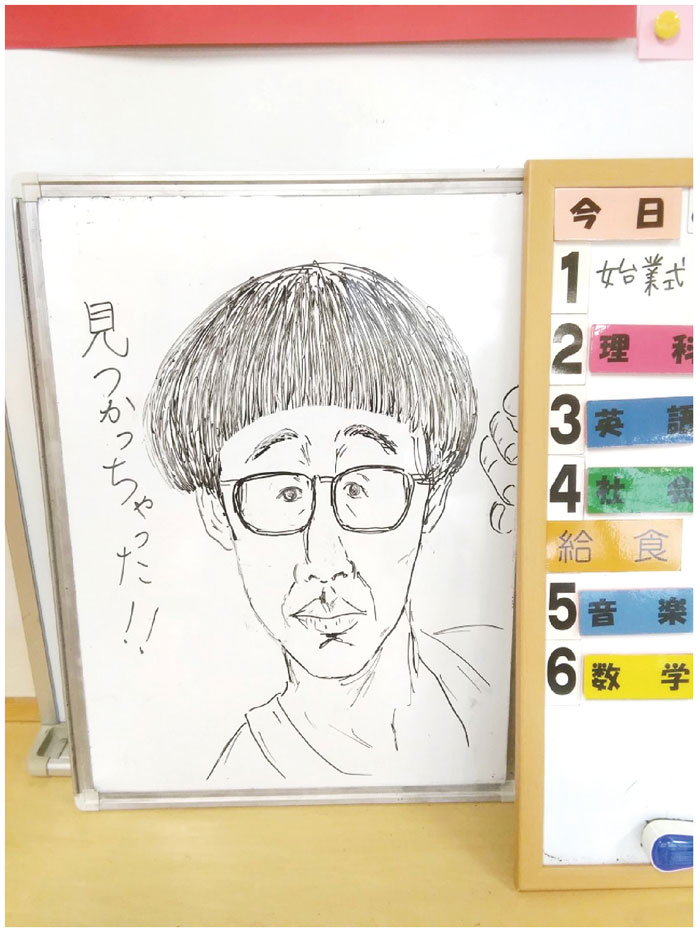 見つかっちゃった!!
今日
1 始業式
2 理科
3 英語
4 社会
給食
5 音楽
6 数学